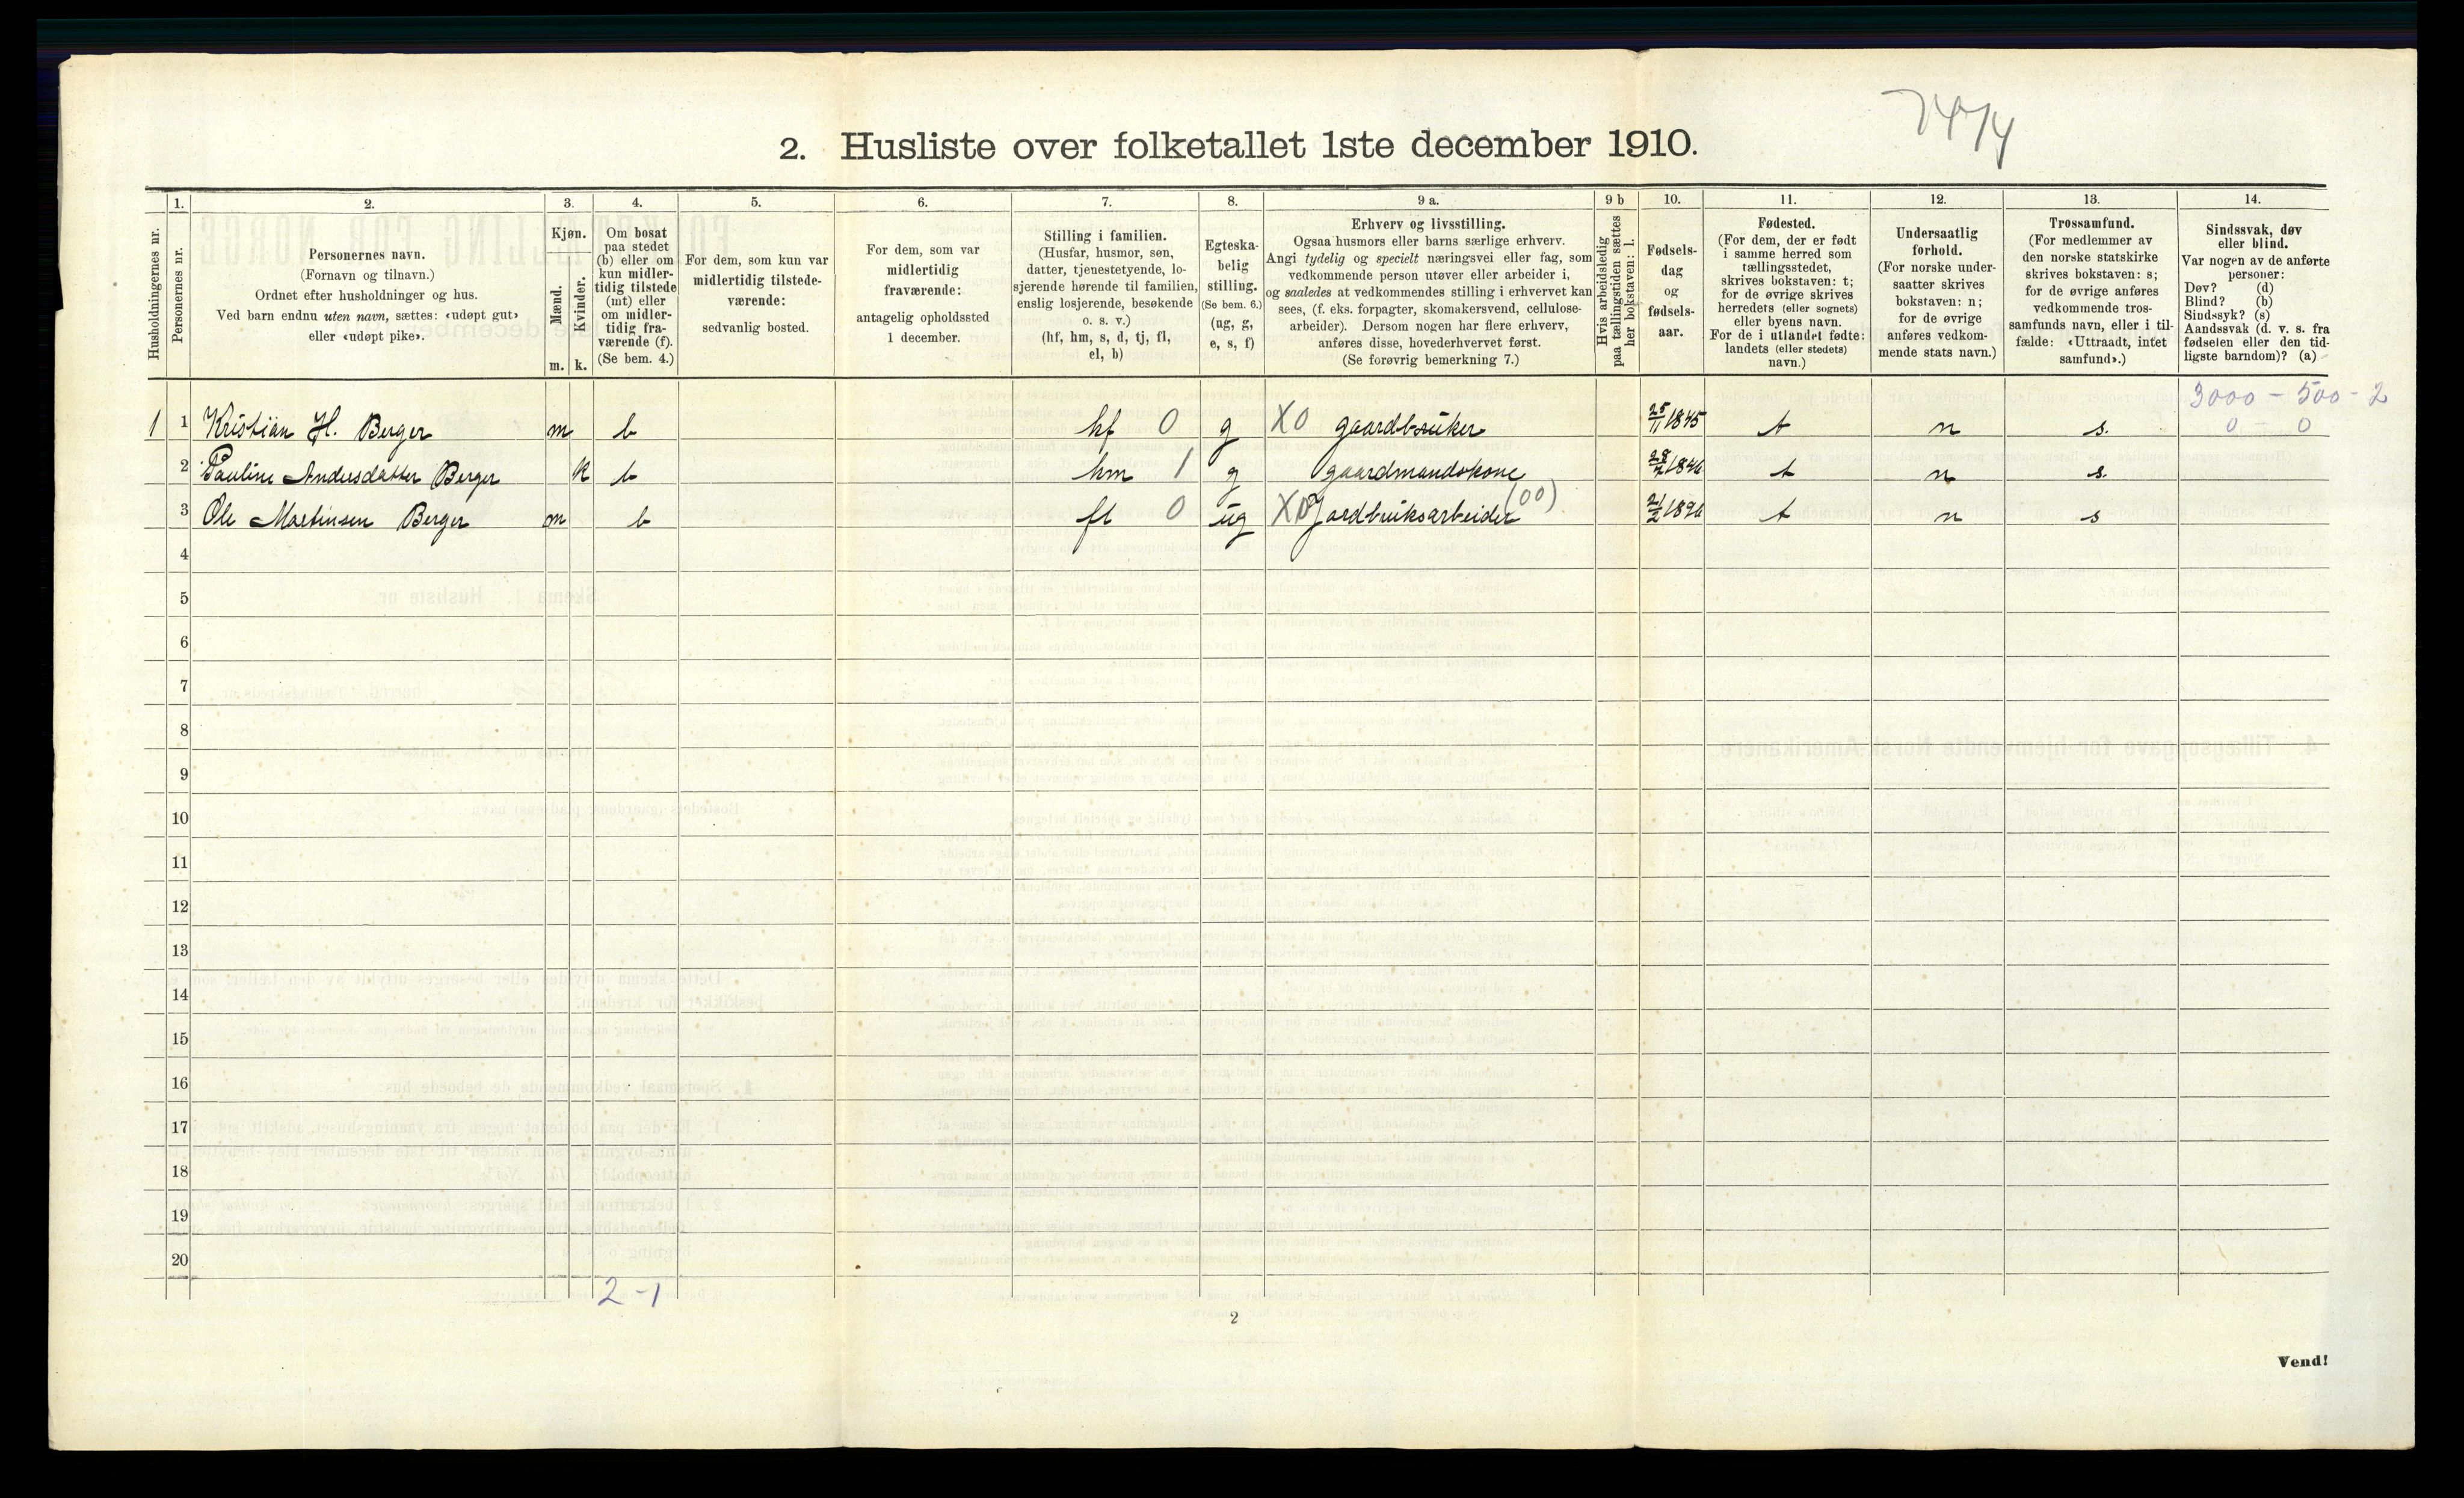 74/4
2. Husliste over folketallet 1ste december 1910.
Husholdningernes nr.
1.
Personernes nr.
2.
Personernes navn.
(Fornavn og tilnavn.)
Ordnet efter husholdninger og hus.
Ved barn endnu uten navn, sættes: «udøpt gut»
eller «udøpt pike».
3.
Kjøn.
Mænd.
Kvinder.
m. k.
4.
Om bosat
paa stedet
(b) eller om
kun midler-
tidig tilstede
(mt) eller
om midler-
tidig fra-
værende (f).
(Se bem. 4.)
5.
For dem, som kun var
midlertidig tilstede-
værende:
sedvanlig bosted.
6.
For dem, som var
midlertidig
fraværende:
antagelig opholdssted
1 december.
7.
Stilling i familien.
(Husfar, husmor, søn,
datter, tjenestetyende, lo-
sjerende hørende til familien,
enslig losjerende, besøkende
o. s. v.)
(hf, hm, s, d, tj, fl,
el, b)
8.
Egteska-
belig
stilling.
(Se bem. 6.)
(ug, g,
e, s, f)
9 a.
Erhverv og livsstilling.
Ogsaa husmors eller barns særlige erhverv.
Angi tydelig og specielt næringsvei eller fag, som
vedkommende person utøver eller arbeider i,
og saaledes at vedkommendes stilling i erhvervet kan
sees, (f. eks. forpagter, skomakersvend, cellulose-
arbeider). Dersom nogen har flere erhverv,
anføres disse, hovederhvervet først.
(Se forøvrig bemerkning 7.)
9 b
Hvis arbeidsledig
paa tællingstiden sættes
her bokstaven: l.
10.
Fødsels-
dag
og
fødsels-
aar.
11.
Fødested.
(For dem, der er født
i samme herred som
tællingsstedet,
skrives bokstaven: t;
for de øvrige skrives
herredets (eller sognets)
eller byens navn.
For de i utlandet fødte:
landets (eller stedets)
navn.)
12.
Undersaatlig
forhold.
(For norske under-
saatter skrives
bokstaven: n;
for de øvrige
anføres vedkom-
mende stats navn.)
13.
Trossamfund.
(For medlemmer av
den norske statskirke
skrives bokstaven: s;
for de øvrige anføres
vedkommende tros-
samfunds navn, eller i til-
fælde: «Uttraadt, intet
samfund».)
14.
Sindssvak, døv
eller blind.
Var nogen av de anførte
personer:
Døv? (d)
Blind? (b)
Sindssyk? (s)
Aandssvak (d. v. s. fra
fødselen eller den tid-
ligste barndom)? (a)
3000 - 500 - 2
1 1 Kristian H. Berger m b hf 0 g X0 gaardbruker 25/11 1845 t n s. 0 - 0
2 Pauline Andersdatter Berger k b hm 1 g gaardmandskone t n s.
3 Ole Martinsen Berger m b fl 0 ug X0 Jordbruksarbeider (00) t n s
4
5
6
7
8
9
10
11
12
13
14
15
16
17
18
19
20
2-1
2
Vend!